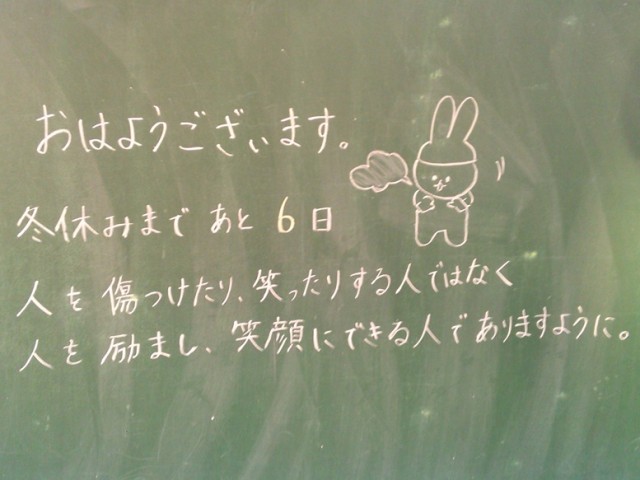 おはようございます。
冬休みまで あと 6日
人を 傷つけたり、笑ったりする人ではなく
人を 励まし、笑顔にできる人でありますように。